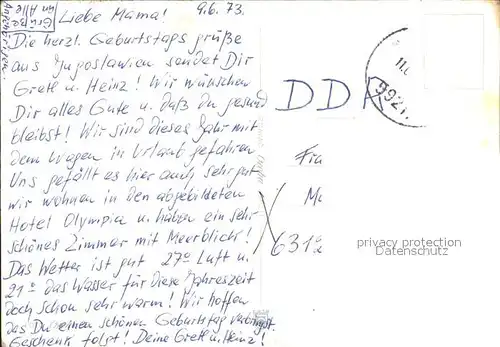 Grüße
an Alle
Angehörigen.
Liebe Mama! 9.6.73.
Die herzl. Geburtstagsgrüße
aus Jugoslawien sendet Dir
Gretl u. Heinz! Wir wünschen
Dir alles Gute u. daß du gesund
bleibst! Wir sind dieses Jahr mit
dem Wagen in Urlaub gefahren
Uns gefällt es hier auch sehr gut
wir wohnen in den abgebildeten
Hotel Olympia u. haben ein sehr
schönes Zimmer mit Meerblick!
Das Wetter ist gut 27° Luft u.
21° das Wasser für diese Jahreszeit
doch schon sehr warm! Wir hoffen
das Du einen schönen Geburtstag verbringst.
Geschenk folgt! Deine Gretl u. Heinz!
DDR
Fra
631
privacy protection
Datenschutz